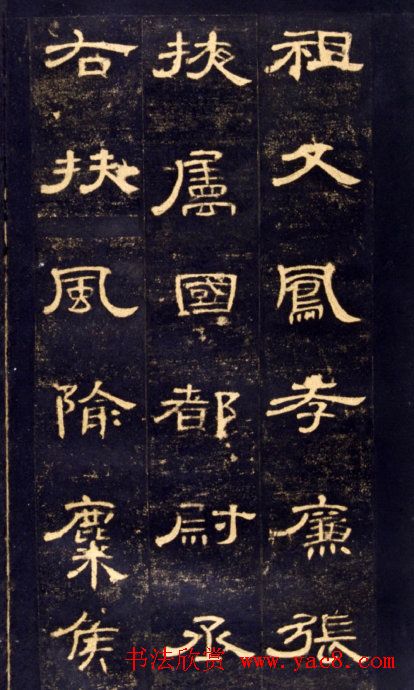 祖父鳳孝廉張
掖屬國都尉丞
右扶風隃麋侯
书法欣赏 www.yac8.com